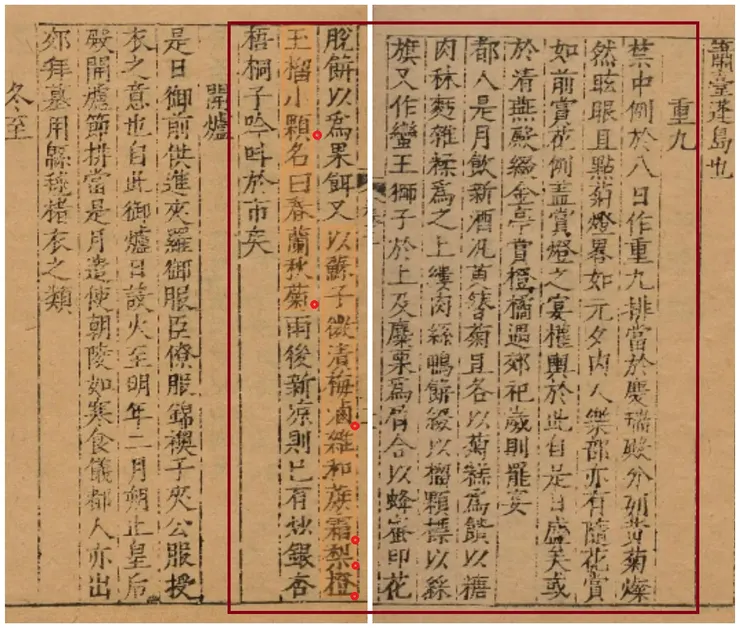 蕭臺蓬島也
重九
禁中例於八日作重九排當於慶瑞殿分列黃菊燦
然眩眼且點菊燈畧如元夕內人樂部亦有隨花賞
如前賞花例蓋賞燈之宴權輿於此自是日盛矣或
於清燕殿綴金亭賞橙橘遇郊祀歲則罷宴
都人是月飲新酒汎萸簪菊且各以菊糕爲饋以糖
肉秫麪雜糅爲之上縷肉絲鴨餅綴以榴顆標以綵
旗又作蠻王獅子於上及糜栗爲屑合以蜂蜜印花
脫餅以爲果餌又以蘇子微清梅鹵雜和蔗霜梨橙
王榴小顆名曰春蘭秋菊雨後新凉則已有炒銀杏
梧桐子吟叫於市矣
開爐
是日御前供進夾羅御服臣僚服錦襖子夾公服授
衣之意也自此御爐日設火至明年二月朔止皇后
殿開爐節排當是月遣使朝陵如寒食儀都人亦出
郊拜墓用緜毬楮衣之類
冬至